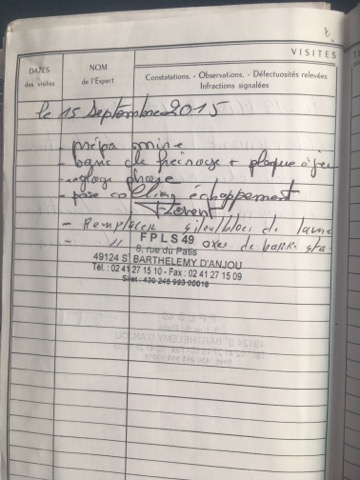 VISITES
DATES
des visites
NOM
de l'Expert
Constatations. - Observations. - Défectuosités relevées
Infractions signalées
le 15 Septembre 2015
- prépa mine
- banc de freinage + plaque à jeu
- reglage phare
- pose collier échappement
Florent
- Remplacer silentblocs de lame
- " " axes de barre sta
FPLS 49
8, rue du Patis
49124 St BARTHELEMY D'ANJOU
Tél. : 02 41 27 15 10 - Fax : 02 41 27 15 09
Siret : 430 245 993 00018